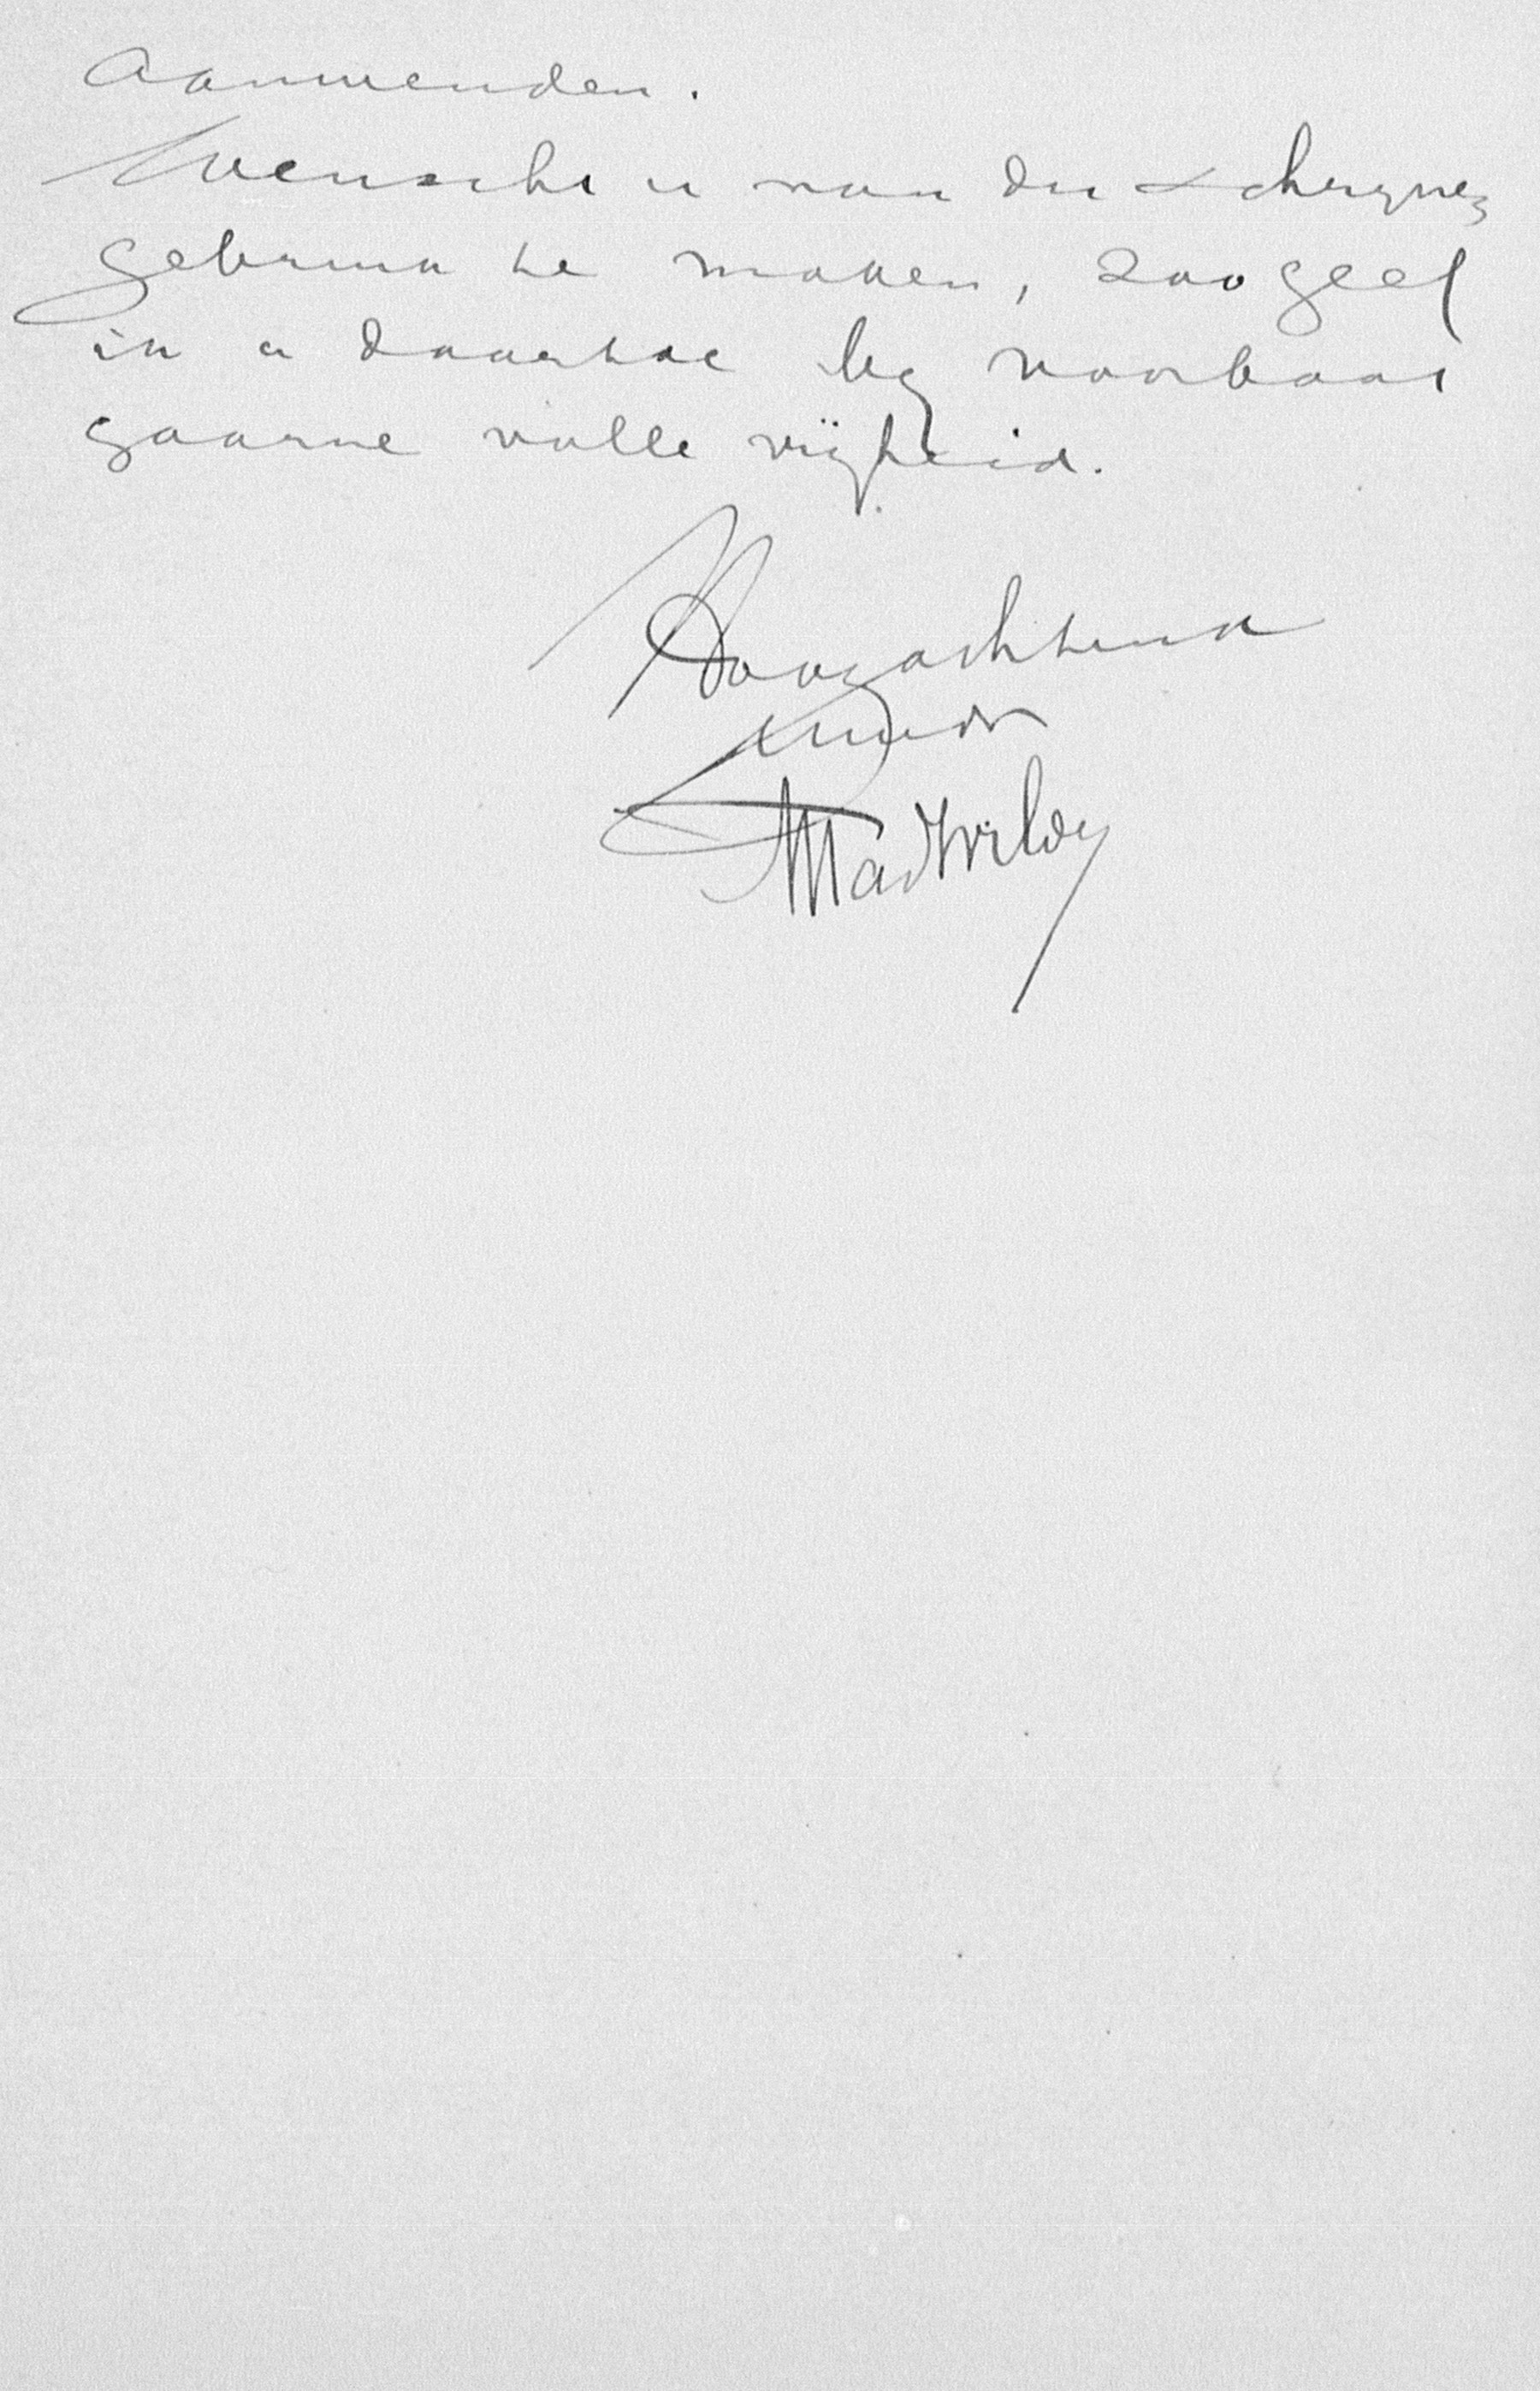 aanwenden.
Wenscht u van dit schryven
gebruik te maken, zoo geef
ik u daartoe by voorbaat
gaarne volle vrijheid.
Hoogachtend